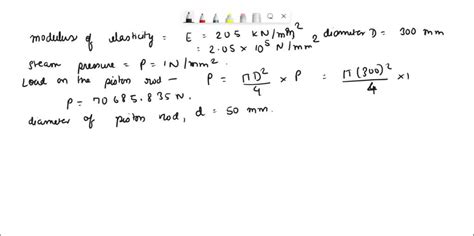 modulus of elasticity = E = 205 kN/mm² diameter D = 300 mm
= 2.05 × 10⁵ N/mm²
Steam pressure = P = 1N/mm².
Load on the piston rod – P = πD²/4 × P = π(300)²/4 × 1
P = 70685.835N.
diameter of piston rod, d = 50 mm.